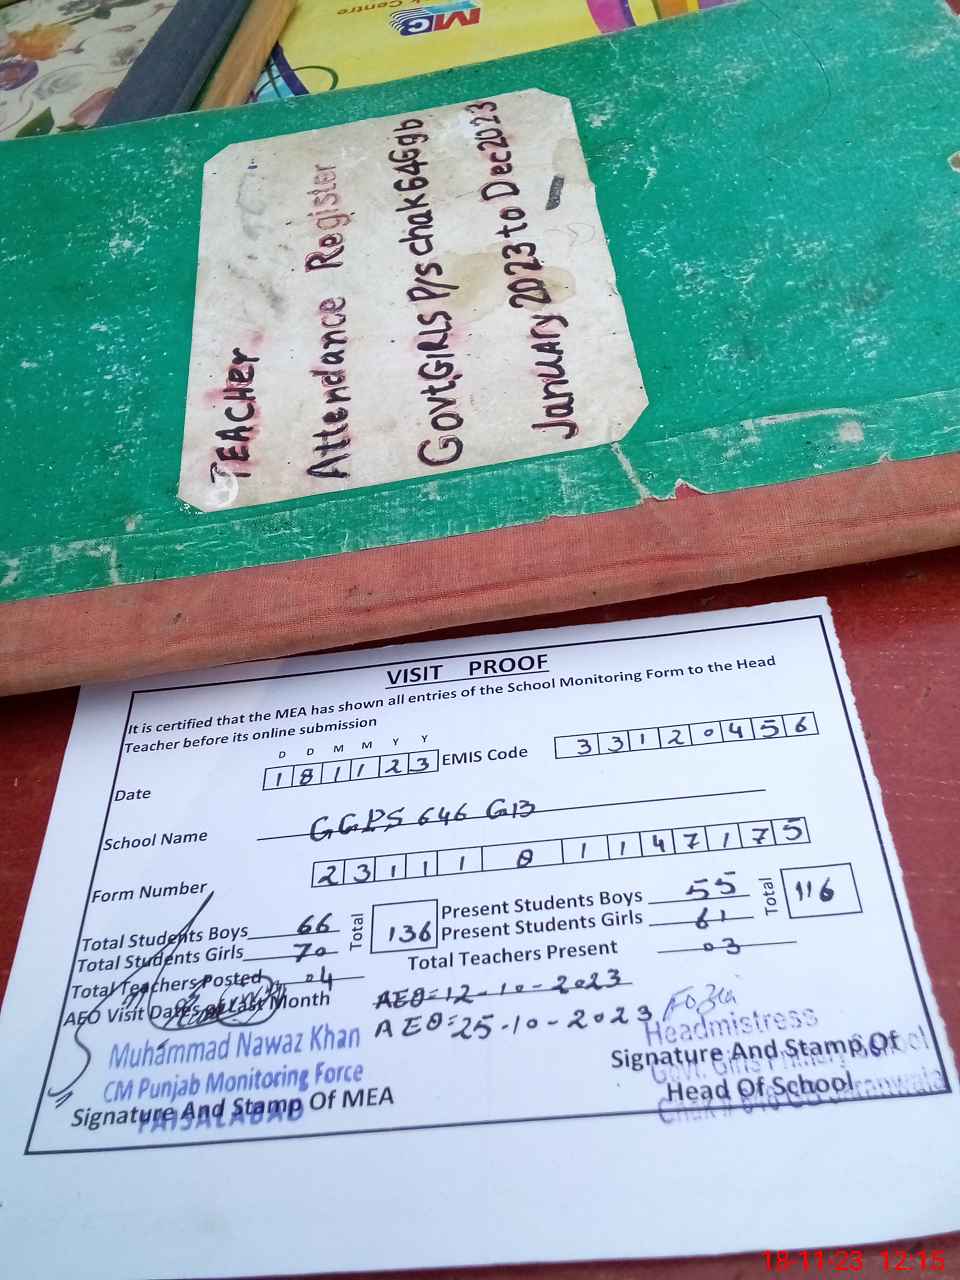 MG
k Centre
TEACHER
Attendance Register
Govt,GIRLS P/s chak 646gb
January 2023 to Dec 2023
VISIT PROOF
It is certified that the MEA has shown all entries of the School Monitoring Form to the Head
Teacher before its online submission
D D M M Y Y
Date 1 8 1 1 2 3 EMIS Code 3 3 1 2 0 4 5 6
School Name GGPS 646 GB
Form Number 2 3 1 1 1 8 1 1 4 7 1 7 5
Total Students Boys 66 Total 136 Present Students Boys 55 Total 116
Total Students Girls 70 Present Students Girls 61
Total Teachers Posted 04 Total Teachers Present 03
AEO Visit Dates of Last Month AEO=12-10-2023
AEO=25-10-2023
Muhammad Nawaz Khan
CM Punjab Monitoring Force
FAISALABAD
Signature And Stamp Of MEA
Fozia
Headmistress
Signature And Stamp Of
Govt. Girls Primary School
Head Of School
Chak # 646 GB Jaranwala
18-11-23 12:15